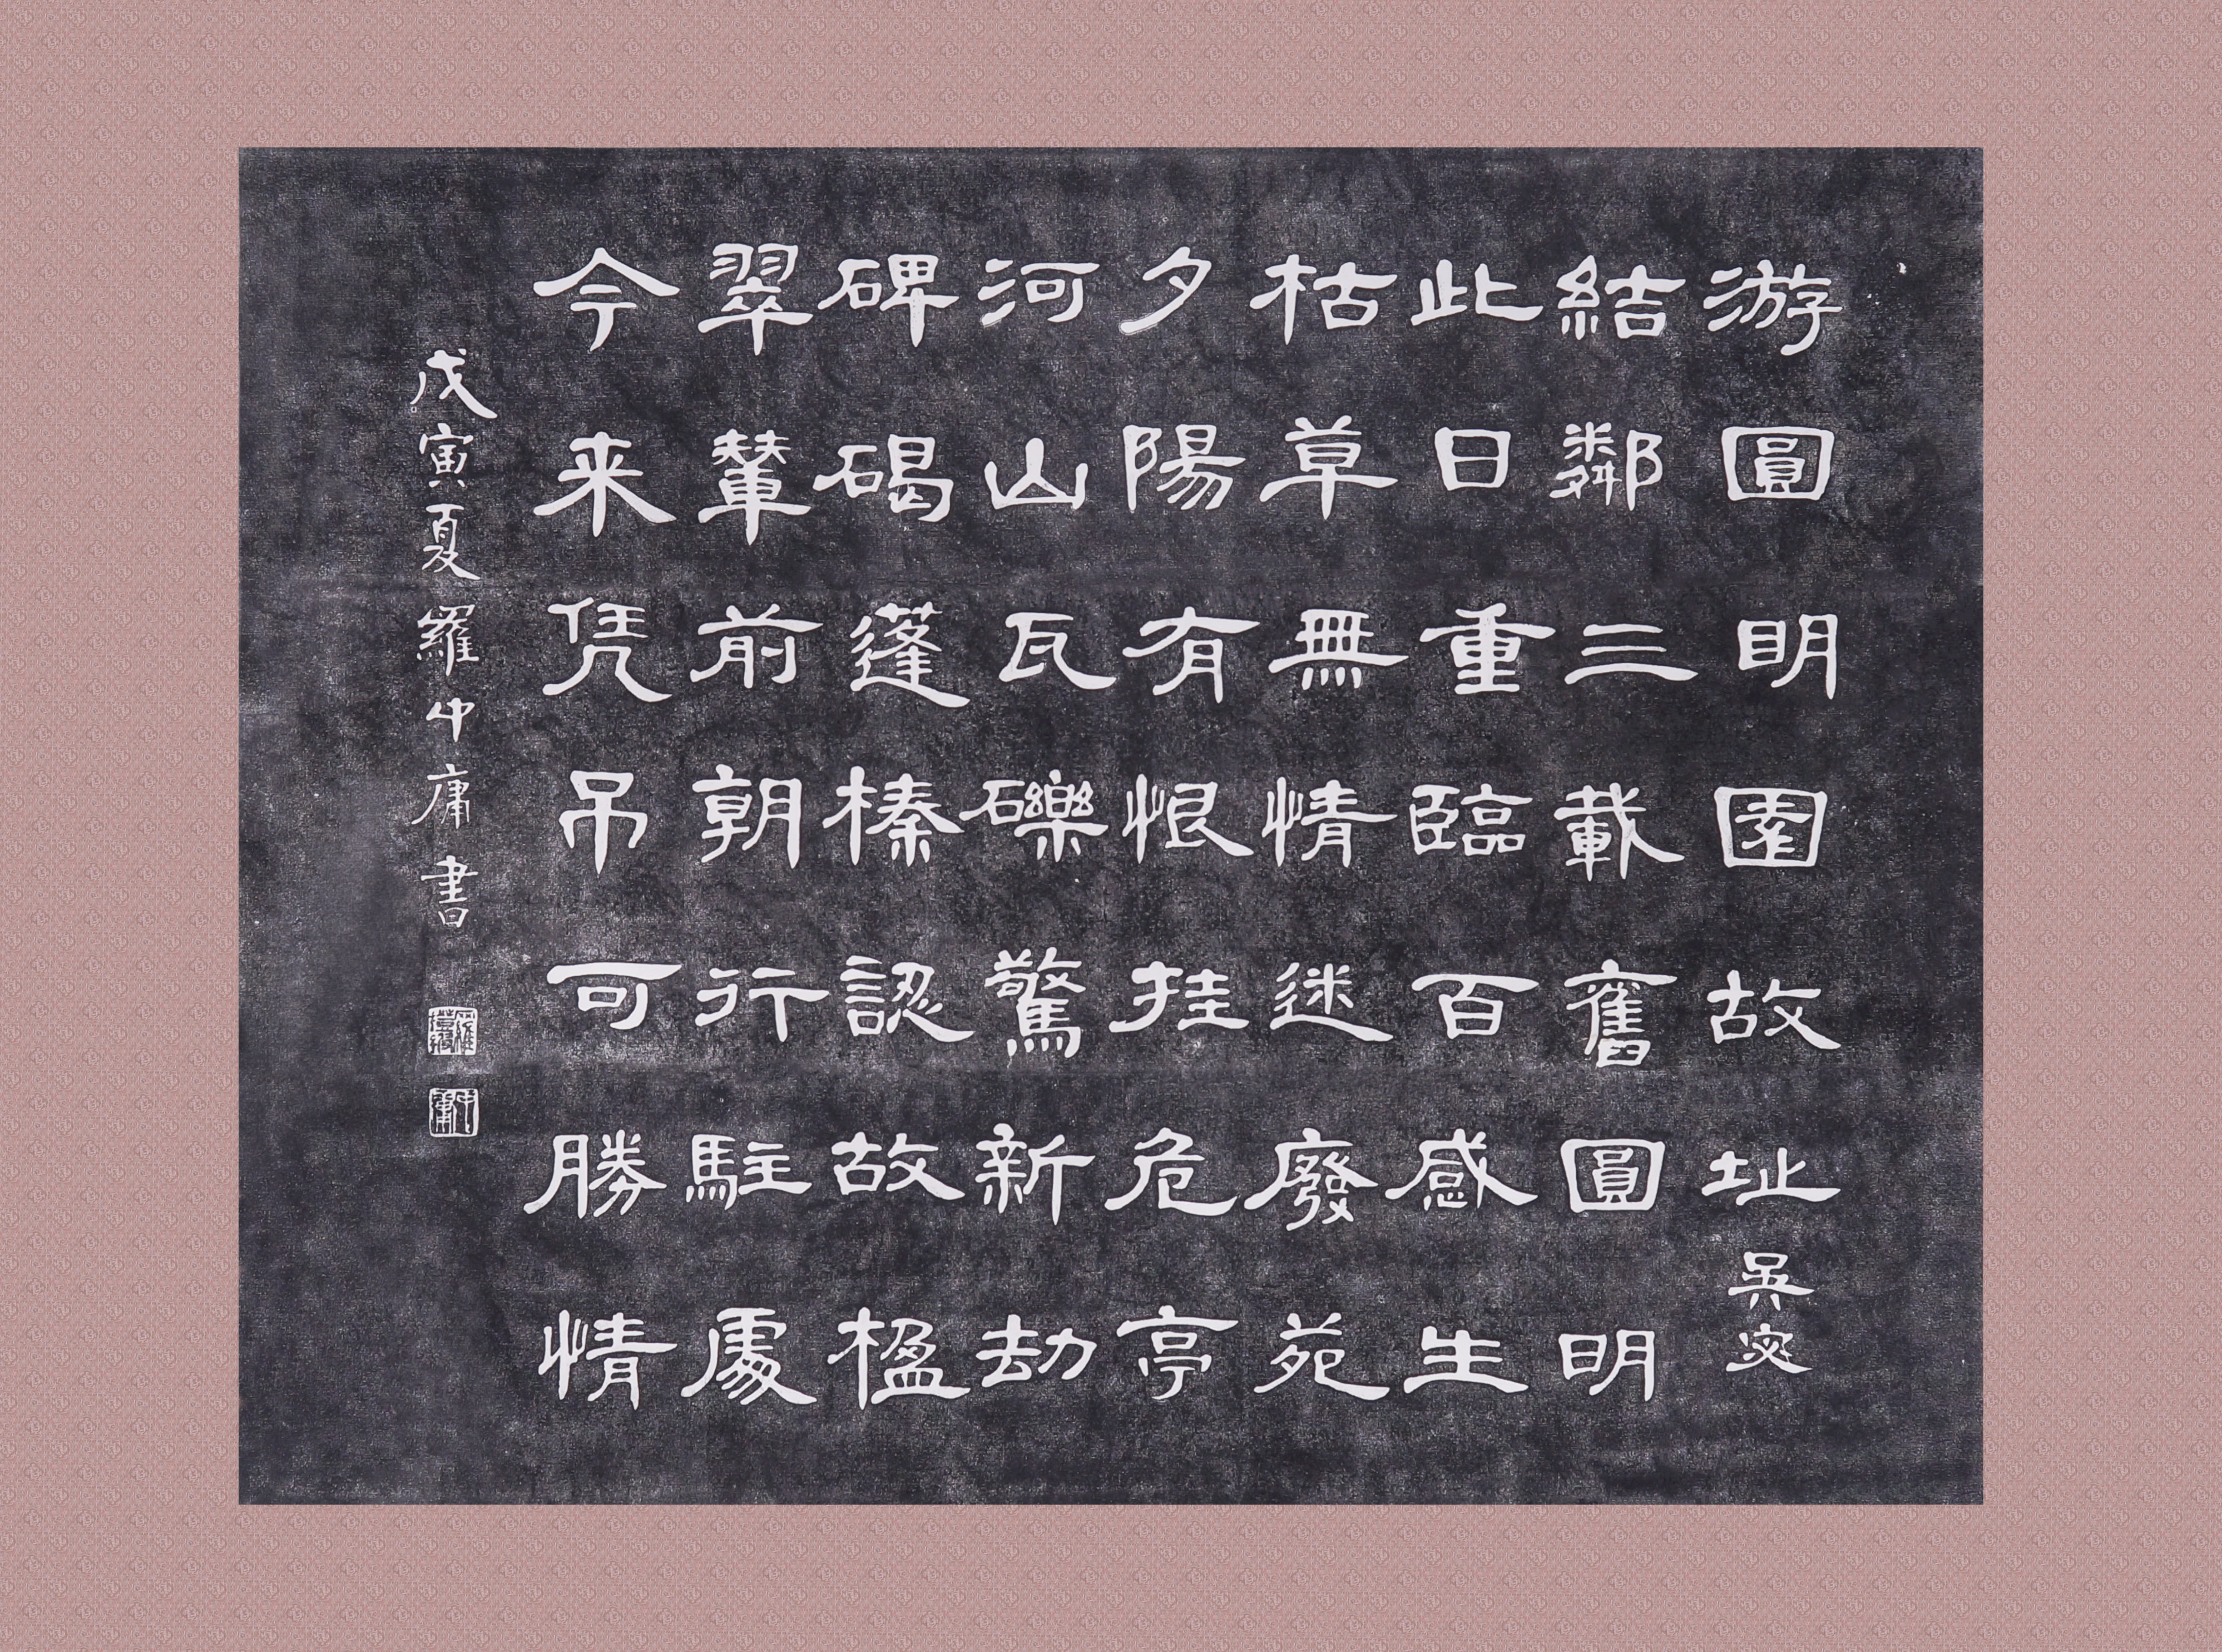 游圓明園故址 吴宓
結鄰三載舊圓明
此日重臨百感生
枯草無情迷廢苑
夕陽有恨挂危亭
河山瓦礫驚新劫
碑碣蓬榛認故楹
翠輦前朝行駐處
今来凭吊可勝情
戊寅夏羅中庸書
中庸